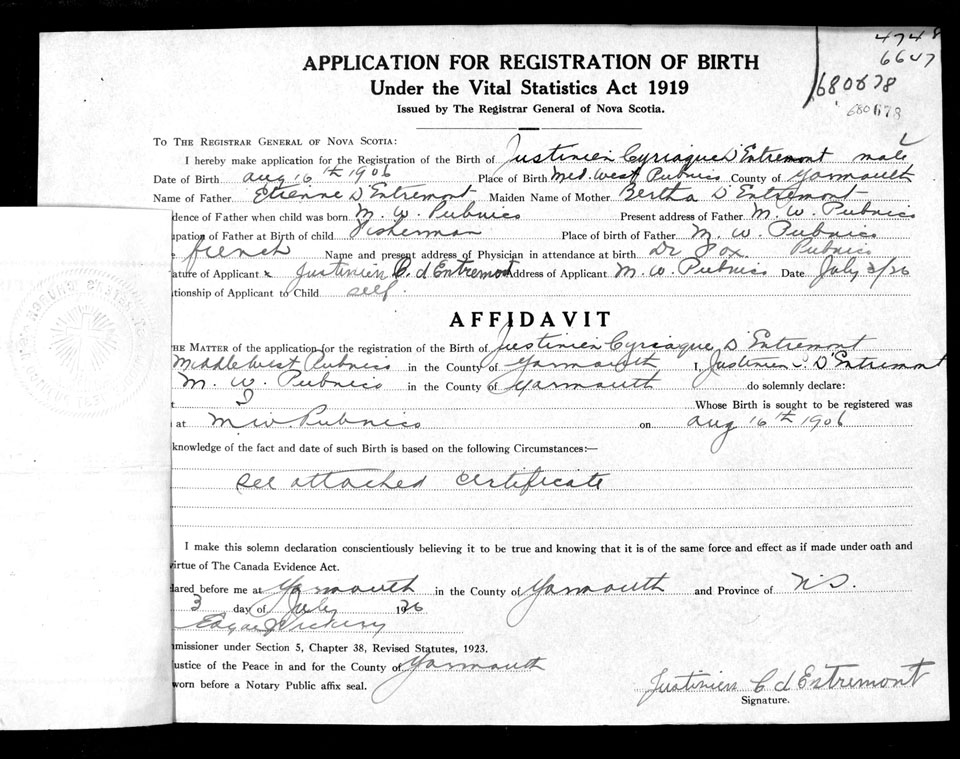 4748
6647
680678
680678
APPLICATION FOR REGISTRATION OF BIRTH
Under the Vital Statistics Act 1919
Issued by The Registrar General of Nova Scotia.
TO THE REGISTRAR GENERAL OF NOVA SCOTIA:
I hereby make application for the Registration of the Birth of Justinien Cyriaque D'Entremont male
Date of Birth aug 16th 1906 Place of Birth Med. West Pubnico County of Yarmouth
Name of Father Etienne D'Entremont Maiden Name of Mother Bertha D'Entremont
idence of Father when child was born M. W. Pubnico Present address of Father M. W. Pubnico
upation of Father at Birth of child Fisherman Place of birth of Father M. W. Pubnico
french Name and present address of Physician in attendance at birth Dr Fox. Pubnico
ature of Applicant Justinien C. d Entremont Address of Applicant M. W. Pubnico Date July 3/26
ationship of Applicant to Child self.
AFFIDAVIT
THE MATTER of the application for the registration of the Birth of Justinien Cyriaque D'Entremont
Middle West Pubnico in the County of Yarmouth I, Justinien C. D'Entremont
M. W. Pubnico in the County of Yarmouth do solemnly declare:
t I Whose Birth is sought to be registered was
at M W Pubnico on aug 16th 1906
knowledge of the fact and date of such Birth is based on the following Circumstances:—
see attached certificate
I make this solemn declaration conscientiously believing it to be true and knowing that it is of the same force and effect as if made under oath and
virtue of The Canada Evidence Act.
lared before me at Yarmouth in the County of Yarmouth and Province of N.S.
3 day of July 1926
Edgar Vickery
mmissioner under Section 5, Chapter 38, Revised Statutes, 1923.
ustice of the Peace in and for the County of Yarmouth
worn before a Notary Public affix seal.
Justinien C d Entremont
Signature.